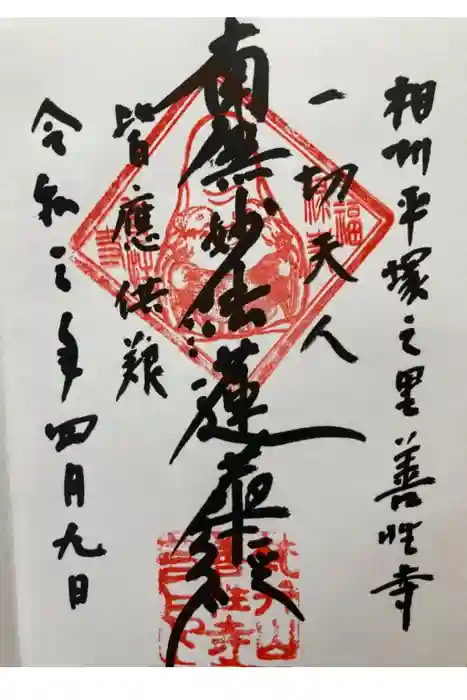 相州平塚之里善性寺
一切天人
南無妙法蓮華經
皆應供養
令和三年四月九日
福
善性寺